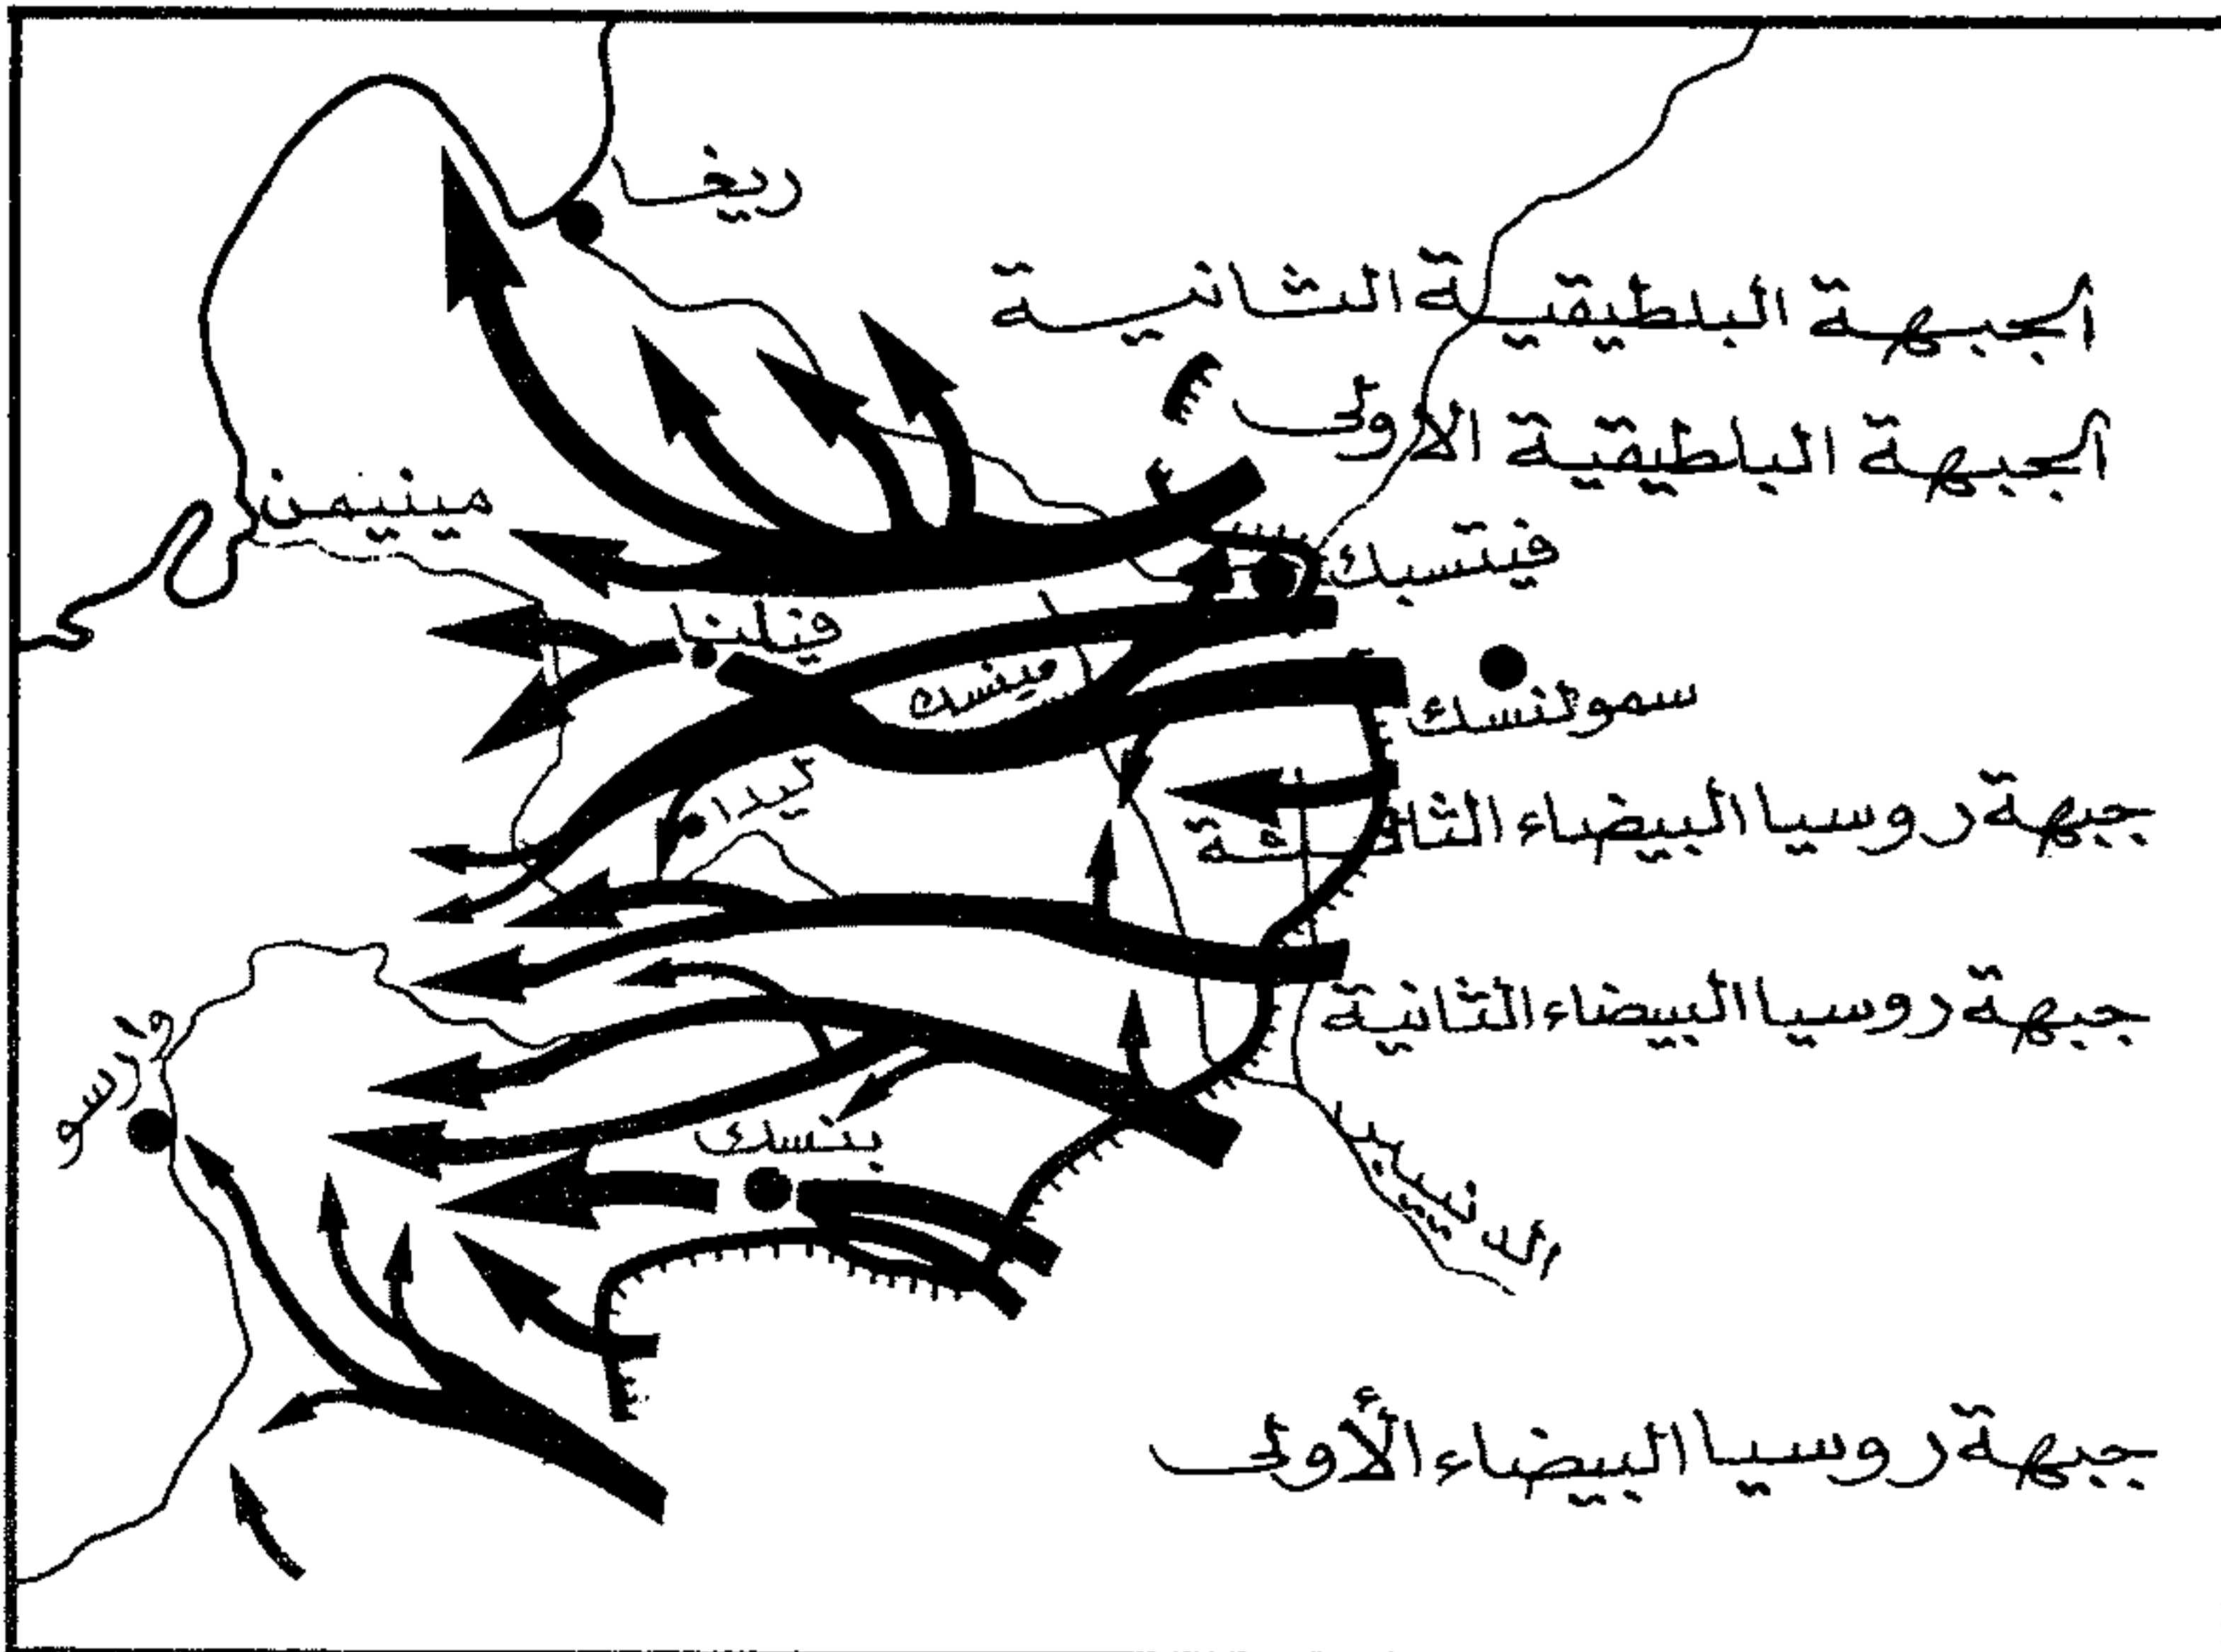 ريغا
الجبهة البلطيقية الثانية
الجبهة البلطيقية الاولى
مينيمن
فيتسبك
فيلنا
مينسك
سمولنسك
ليدا
جبهة روسيا البيضاء الثالثة
جبهة روسيا البيضاء الثانية
وارسو
بنسك
الدنيبر
جبهة روسيا البيضاء الأولى